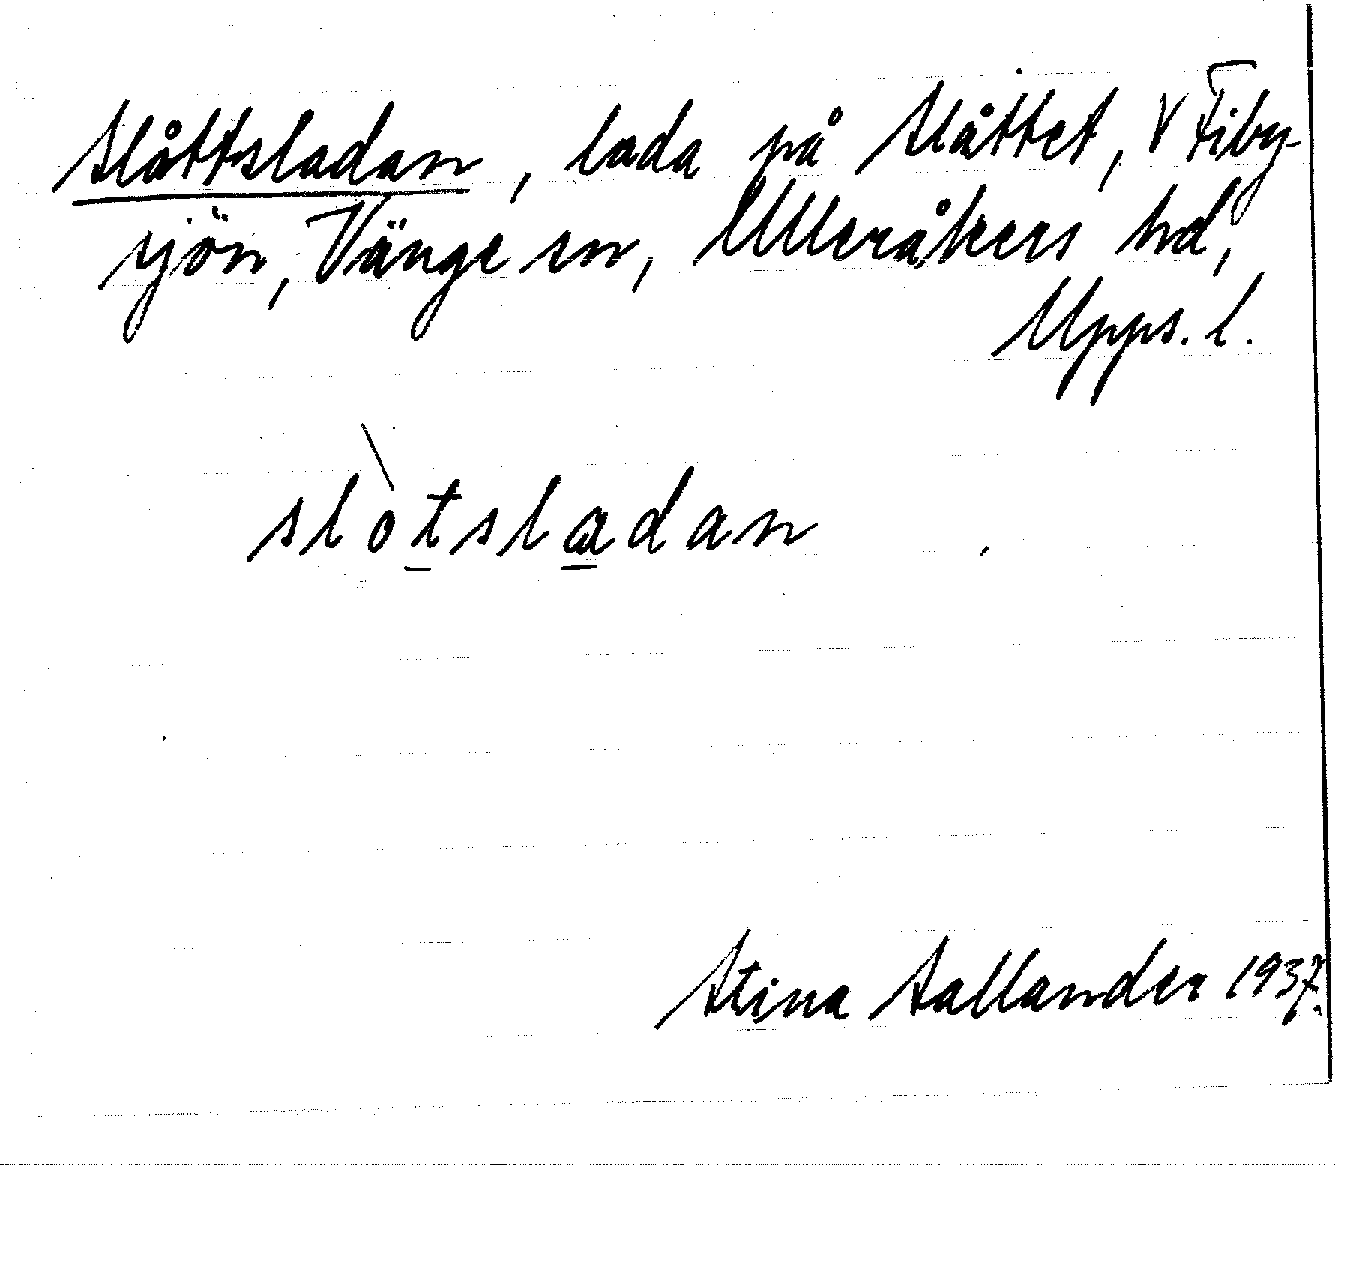 Slåttsladan, lada på Slåttet, V Fiby-
sjön, Vänge sn, Ulleråkers hd,
Upps. l.
slòt̲sla̲dan
Stina Sallander 1937.